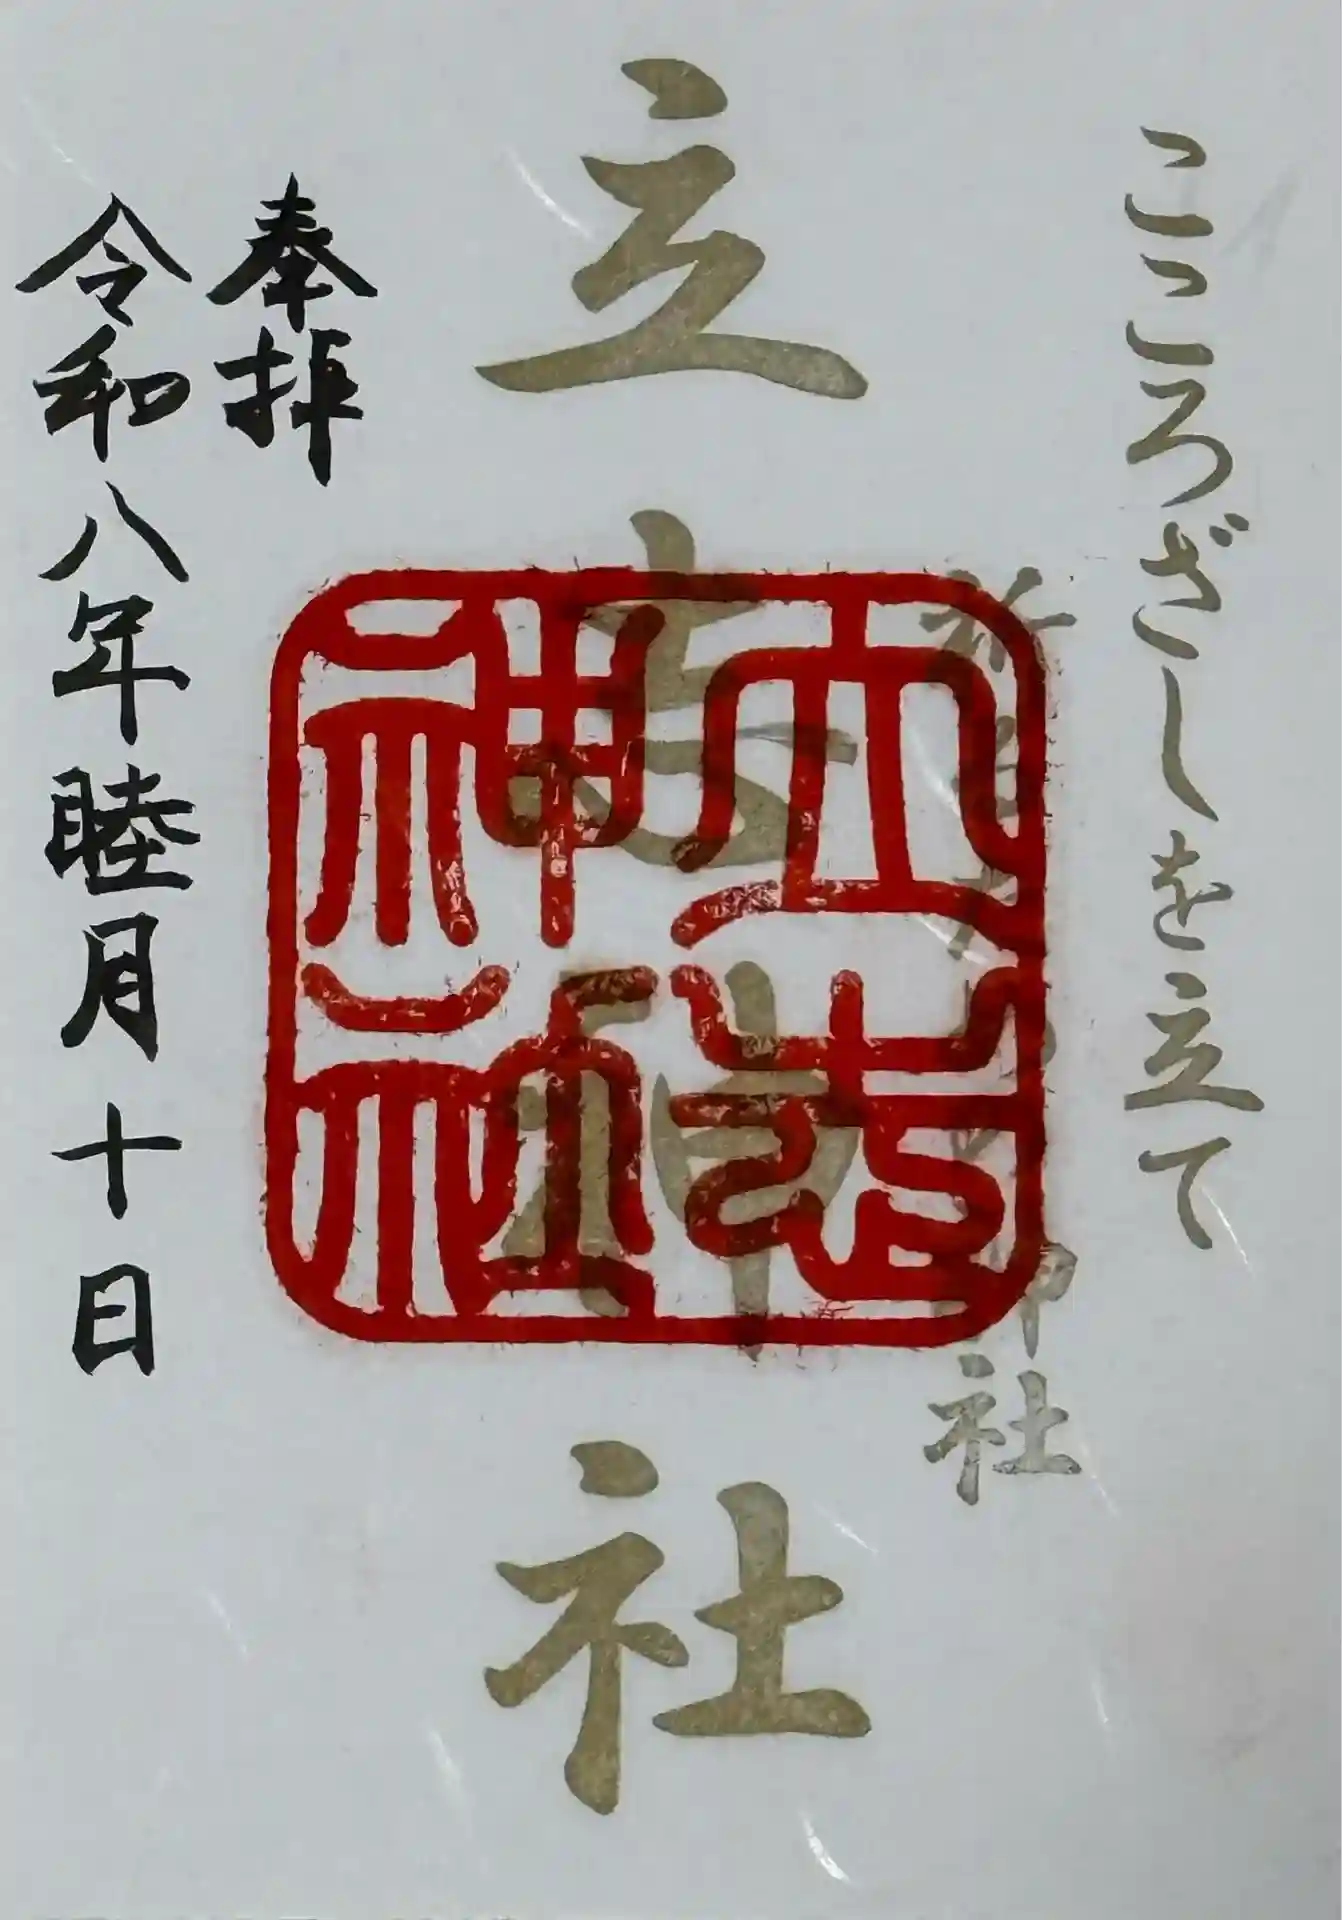 こころざしを立て
神社
立志神社
立志神社
奉拝
令和八年睦月十日